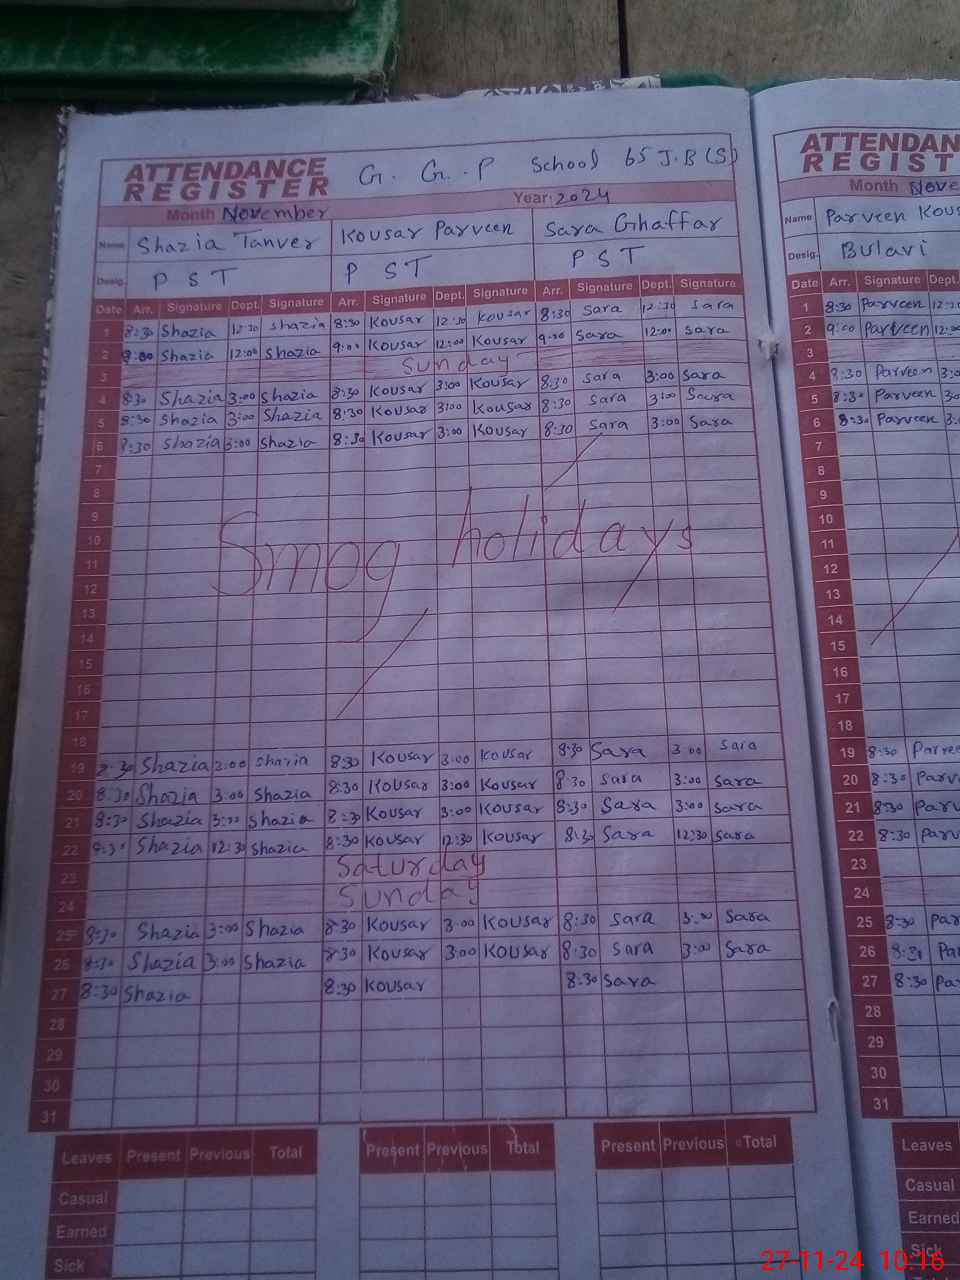 ATTENDANCE REGISTER G. G. P School 65 J.B (S)
Month November Year: 2024
Name Shazia Tanver Kousar Parveen Sara Ghaffar
Desig. P S T P S T P S T
Date Arr. Signature Dept. Signature Arr. Signature Dept. Signature Arr. Signature Dept. Signature
1 8:30 Shazia 12:30 Shazia 8:30 Kousar 12:30 Kousar 8:30 Sara 12:30 Sara
2 9:00 Shazia 12:00 Shazia 9:00 Kousar 12:00 Kousar 9:00 Sara 12:00 Sara
3 Sunday
4 8:30 Shazia 3:00 Shazia 8:30 Kousar 3:00 Kousar 8:30 Sara 3:00 Sara
5 8:30 Shazia 3:00 Shazia 8:30 Kousar 3:00 Kousar 8:30 Sara 3:00 Sara
6 8:30 Shazia 3:00 Shazia 8:30 Kousar 3:00 Kousar 8:30 Sara 3:00 Sara
7
8
9
10
11
12
Smog holidays
13
14
15
16
17
18
19 8:30 Shazia 3:00 Shazia 8:30 Kousar 3:00 Kousar 8:30 Sara 3:00 Sara
20 8:30 Shazia 3:00 Shazia 8:30 Kousar 3:00 Kousar 8:30 Sara 3:00 Sara
21 8:30 Shazia 3:00 Shazia 8:30 Kousar 3:00 Kousar 8:30 Sara 3:00 Sara
22 8:30 Shazia 12:30 Shazia 8:30 Kousar 12:30 Kousar 8:30 Sara 12:30 Sara
23 Saturday
24 Sunday
25 8:30 Shazia 3:00 Shazia 8:30 Kousar 3:00 Kousar 8:30 Sara 3:00 Sara
26 8:30 Shazia 3:00 Shazia 8:30 Kousar 3:00 Kousar 8:30 Sara 3:00 Sara
27 8:30 Shazia 8:30 Kousar 8:30 Sara
28
29
30
31
Leaves Present Previous Total Present Previous Total Present Previous Total
Casual
Earned
Sick
ATTENDAN
REGIST
Month Nove
Name Parveen Kous
Desig. Bulavi
Date Arr. Signature Dept.
1 8:30 Parveen 12:3
2 9:00 Parveen 12:00
3
4 8:30 Parveen 3:0
5 8:30 Parveen 3:0
6 8:30 Parveen 3:
7
8
9
10
11
12
13
14
15
16
17
18
19 8:30 Parvee
20 8:30 Parv
21 8:30 Parv
22 8:30 Parv
23
24
25 8:30 Par
26 8:30 Pa
27 8:30 Pa
28
29
30
31
Leaves
Casual
Earned
Sick
27-11-24 10:16